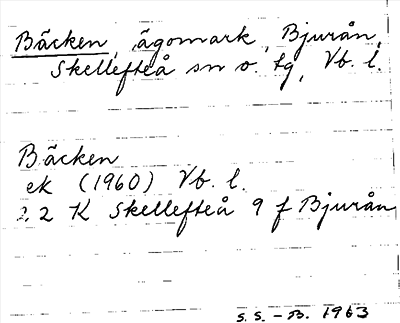 Bäcken, ägomark, Bjurån,
Skellefteå sn o. tg, Vb. l.
Bäcken
ek (1960) Vb. l.
22 K Skellefteå 9 f Bjurån
S.S. - B. 1963